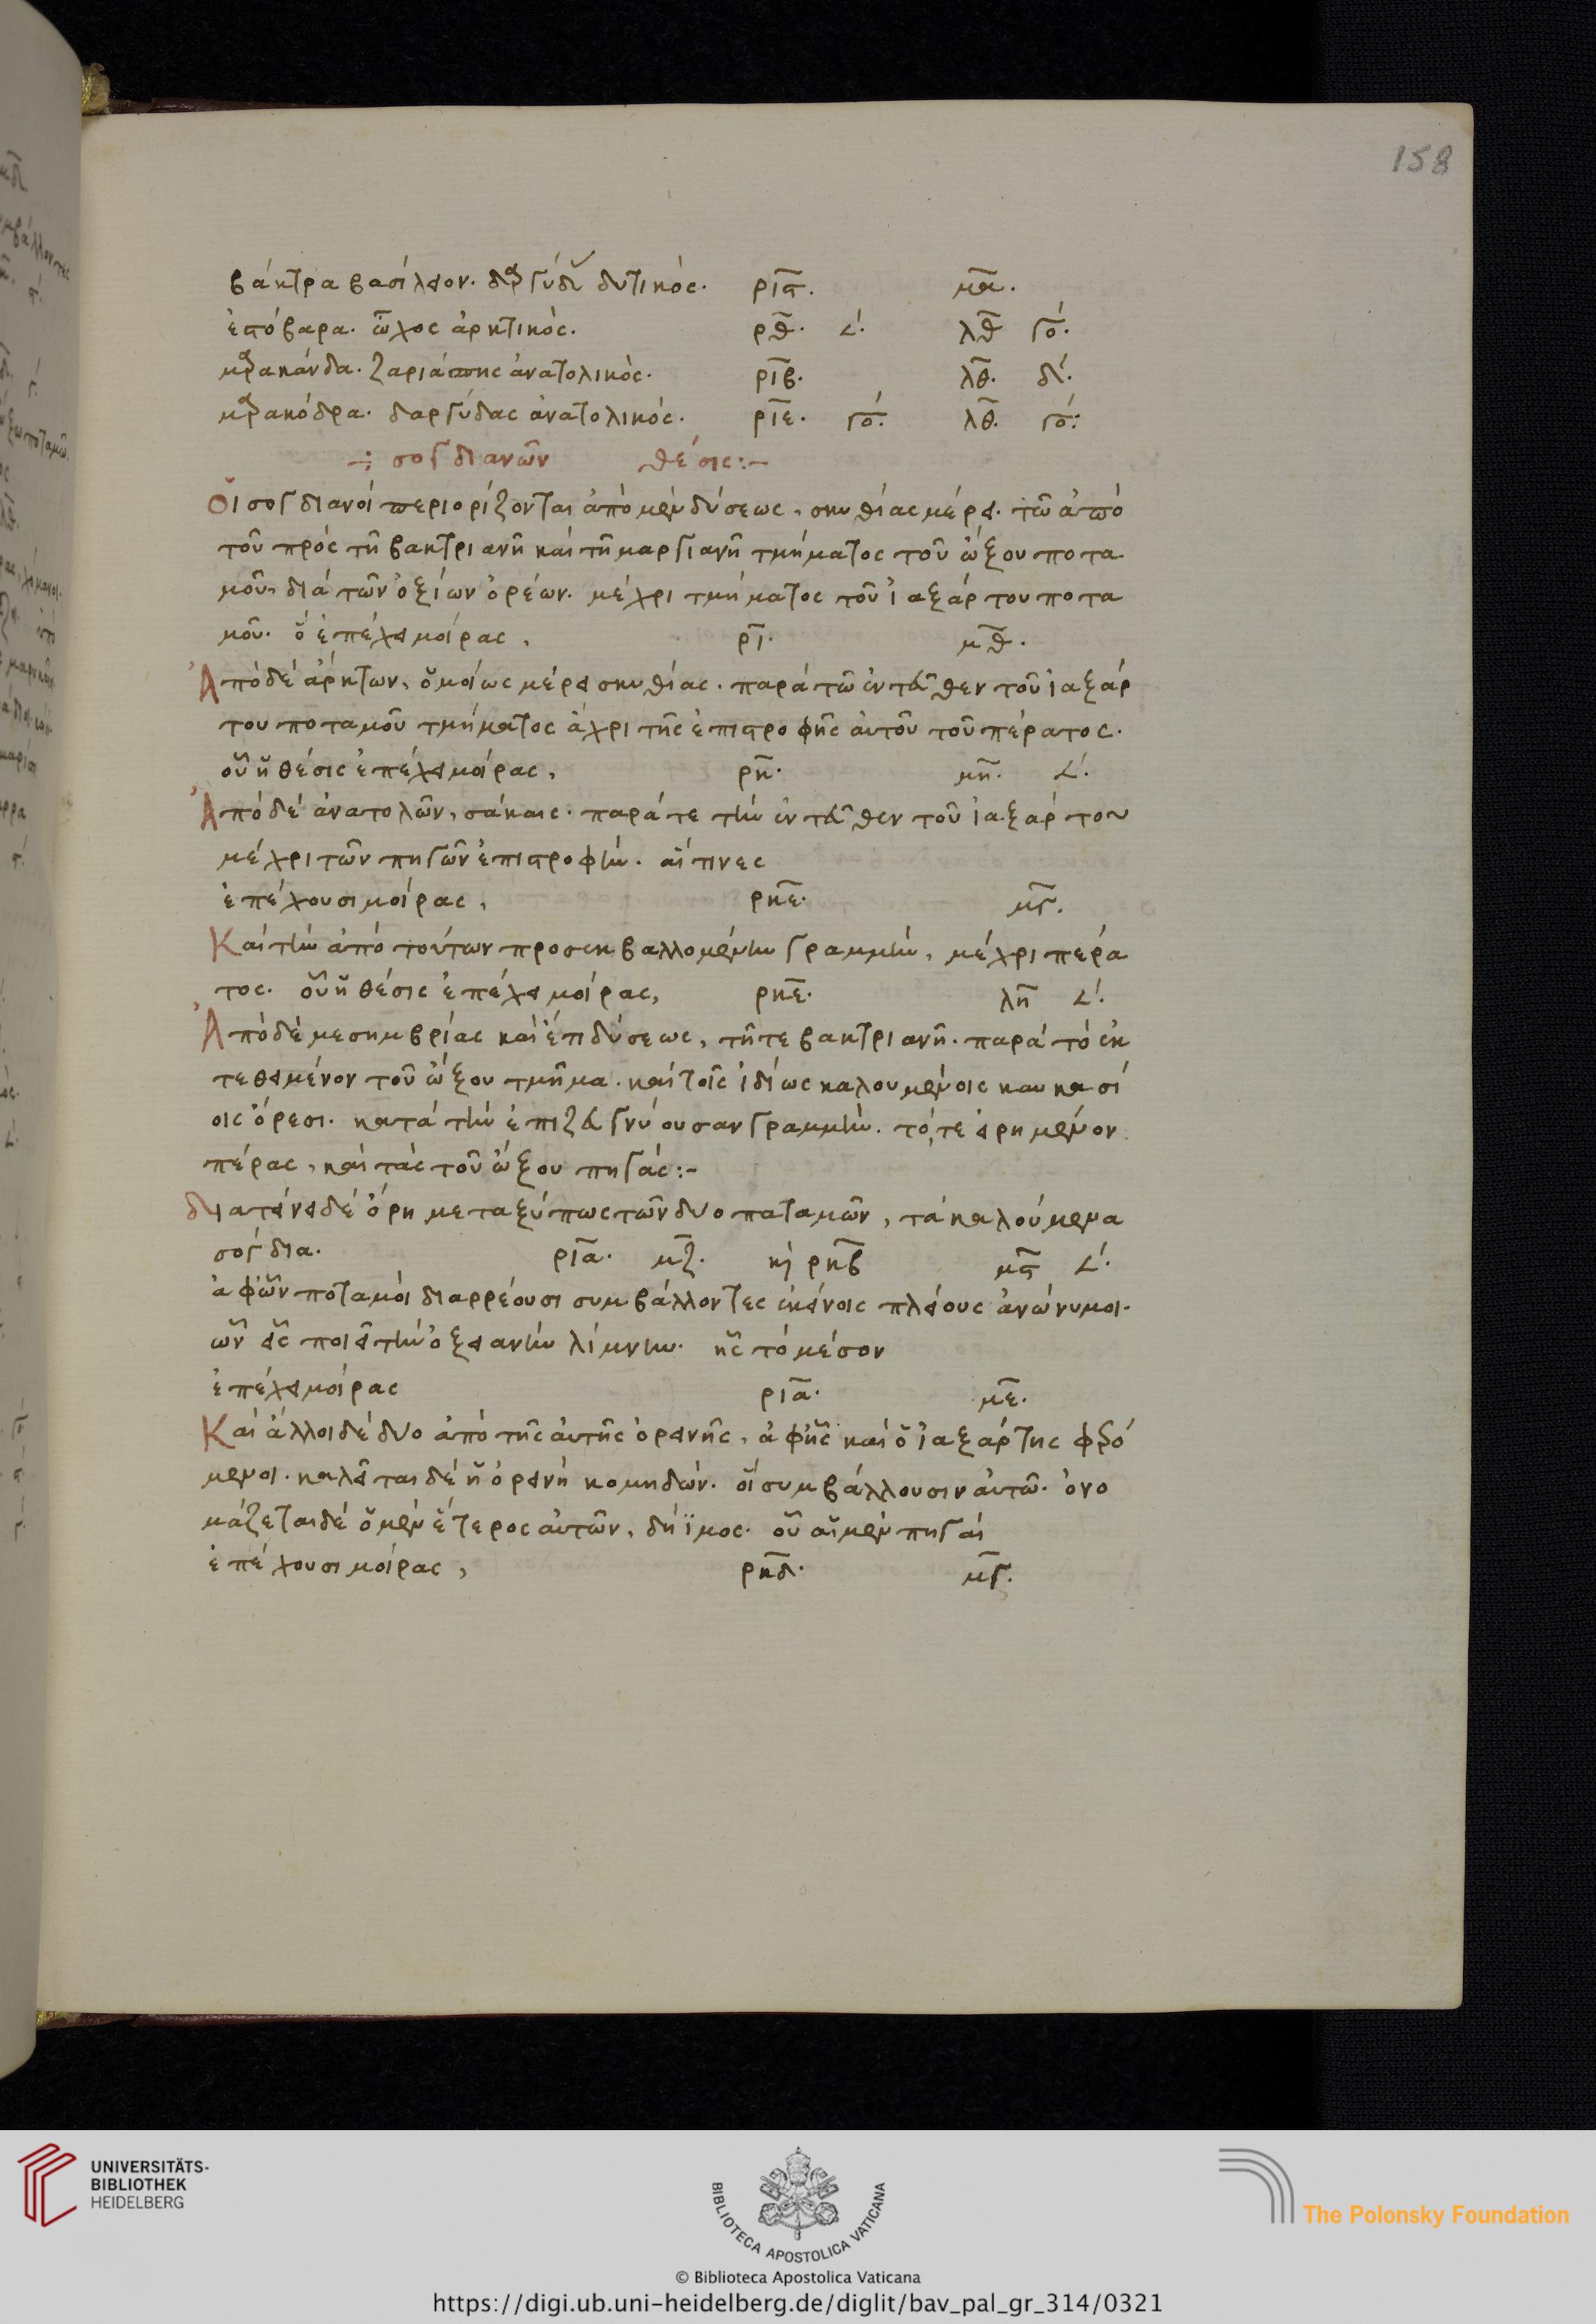 158
βάκτρα βασίλειον. δαργύδου δυτικός. ριϛ. μα.
ἐστόβαρα. ὦχος ἀρκτικός. ρθ. 𐅵. λθ γο.
μαρακάνδα. ζαριάσπης ἀνατολικός. ριβ. λθ. δ.
μαρακόδρα. δαργύδας ἀνατολικός. ριε. γο. λθ. γο.
σογδιανῶν θέσις:-
Οἱ σογδιανοί περιορίζονται ἀπὸ μὲν δύσεως, σκυθίας μέρει. τῶ ἀπὸ
τοῦ πρός τῆ βακτριανῆ καί τῆ μαργιανῆ τμήματος τοῦ ὤξου ποτα
μοῦ. διά τῶν ὀξίων ὀρέων. μέχρι τμήματος τοῦ ἰαξάρτου ποτα
μοῦ. ὅ ἐπέχει μοίρας, ρι. μθ.
Ἀπό δέ ἄρκτων, ὁμοίως μέρει σκυθίας. παρά τῶ ἐντεῦθεν τοῦ ἰαξάρ
του ποταμοῦ τμήματος ἄχρι τῆς ἐπιστροφῆς αὐτοῦ τοῦ πέρατος.
οὗ ἡ θέσις ἐπέχει μοίρας, ρκ. μη. 𐅵.
Ἀπό δέ ἀνατολῶν, σάκαις. παρά τε τὴν ἐντεῦθεν τοῦ ἰαξάρτου
μέχρι τῶν πηγῶν ἐπιστροφήν. αἵτινες
ἐπέχουσι μοίρας, ρκε. μγ.
Καί τὴν ἀπό τούτων προσεκβαλλομένην γραμμήν, μέχρι πέρα
τος. οὗ ἡ θέσις ἐπέχει μοίρας, ρκε. λη 𐅵.
Ἀπό δέ μεσημβρίας καί ἔτι δύσεως, τῆ τε βακτριανῆ. παρά τό ἐκ
τεθειμένον τοῦ ὤξου τμῆμα. καί τοῖς ἰδίως καλουμένοις καυκασί
οις ὄρεσι. κατά τὴν ἐπιζευγνύουσαν γραμμήν. τό, τε εἰρημένον
πέρας, καί τάς τοῦ ὤξου πηγάς:-
διατείνει δέ ὄρη μεταξύ πως τῶν δυο παταμῶν, τά καλούμενα
σόγδια. ρια. μζ. κὶ ρκβ μϛ 𐅵.
ἀφ᾽ ὧν ποταμοί διαρρέουσι συμβάλλοντες ἐκείνοις πλείους ἀνώνυμοι.
ὧν εἷς ποιεῖ τὴν ὀξειανὴν λίμνην. ἧς τό μέσον
ἐπέχει μοίρας ρια. με.
Καί ἄλλοι δέ δυο ἀπό τῆς αὐτῆς ὀρεινῆς, ἀφ᾽ ἧς καί ὁ ἰαξάρτης φερό
μενοι. καλεῖται δέ ἡ ὀρεινή κομηδῶν. οἵ συμβάλλουσιν αὐτῶ. ὀνο
μάζεται δέ ὁ μὲν ἕτερος αὐτῶν, δήϊμος. οὗ αἱ μὲν πηγαί
ἐπέχουσι μοίρας, ρκδ. μγ.
UNIVERSITÄTS-
BIBLIOTHEK
HEIDELBERG
BIBLIOTECA APOSTOLICA VATICANA
The Polonsky Foundation
© Biblioteca Apostolica Vaticana
https://digi.ub.uni-heidelberg.de/diglit/bav_pal_gr_314/0321